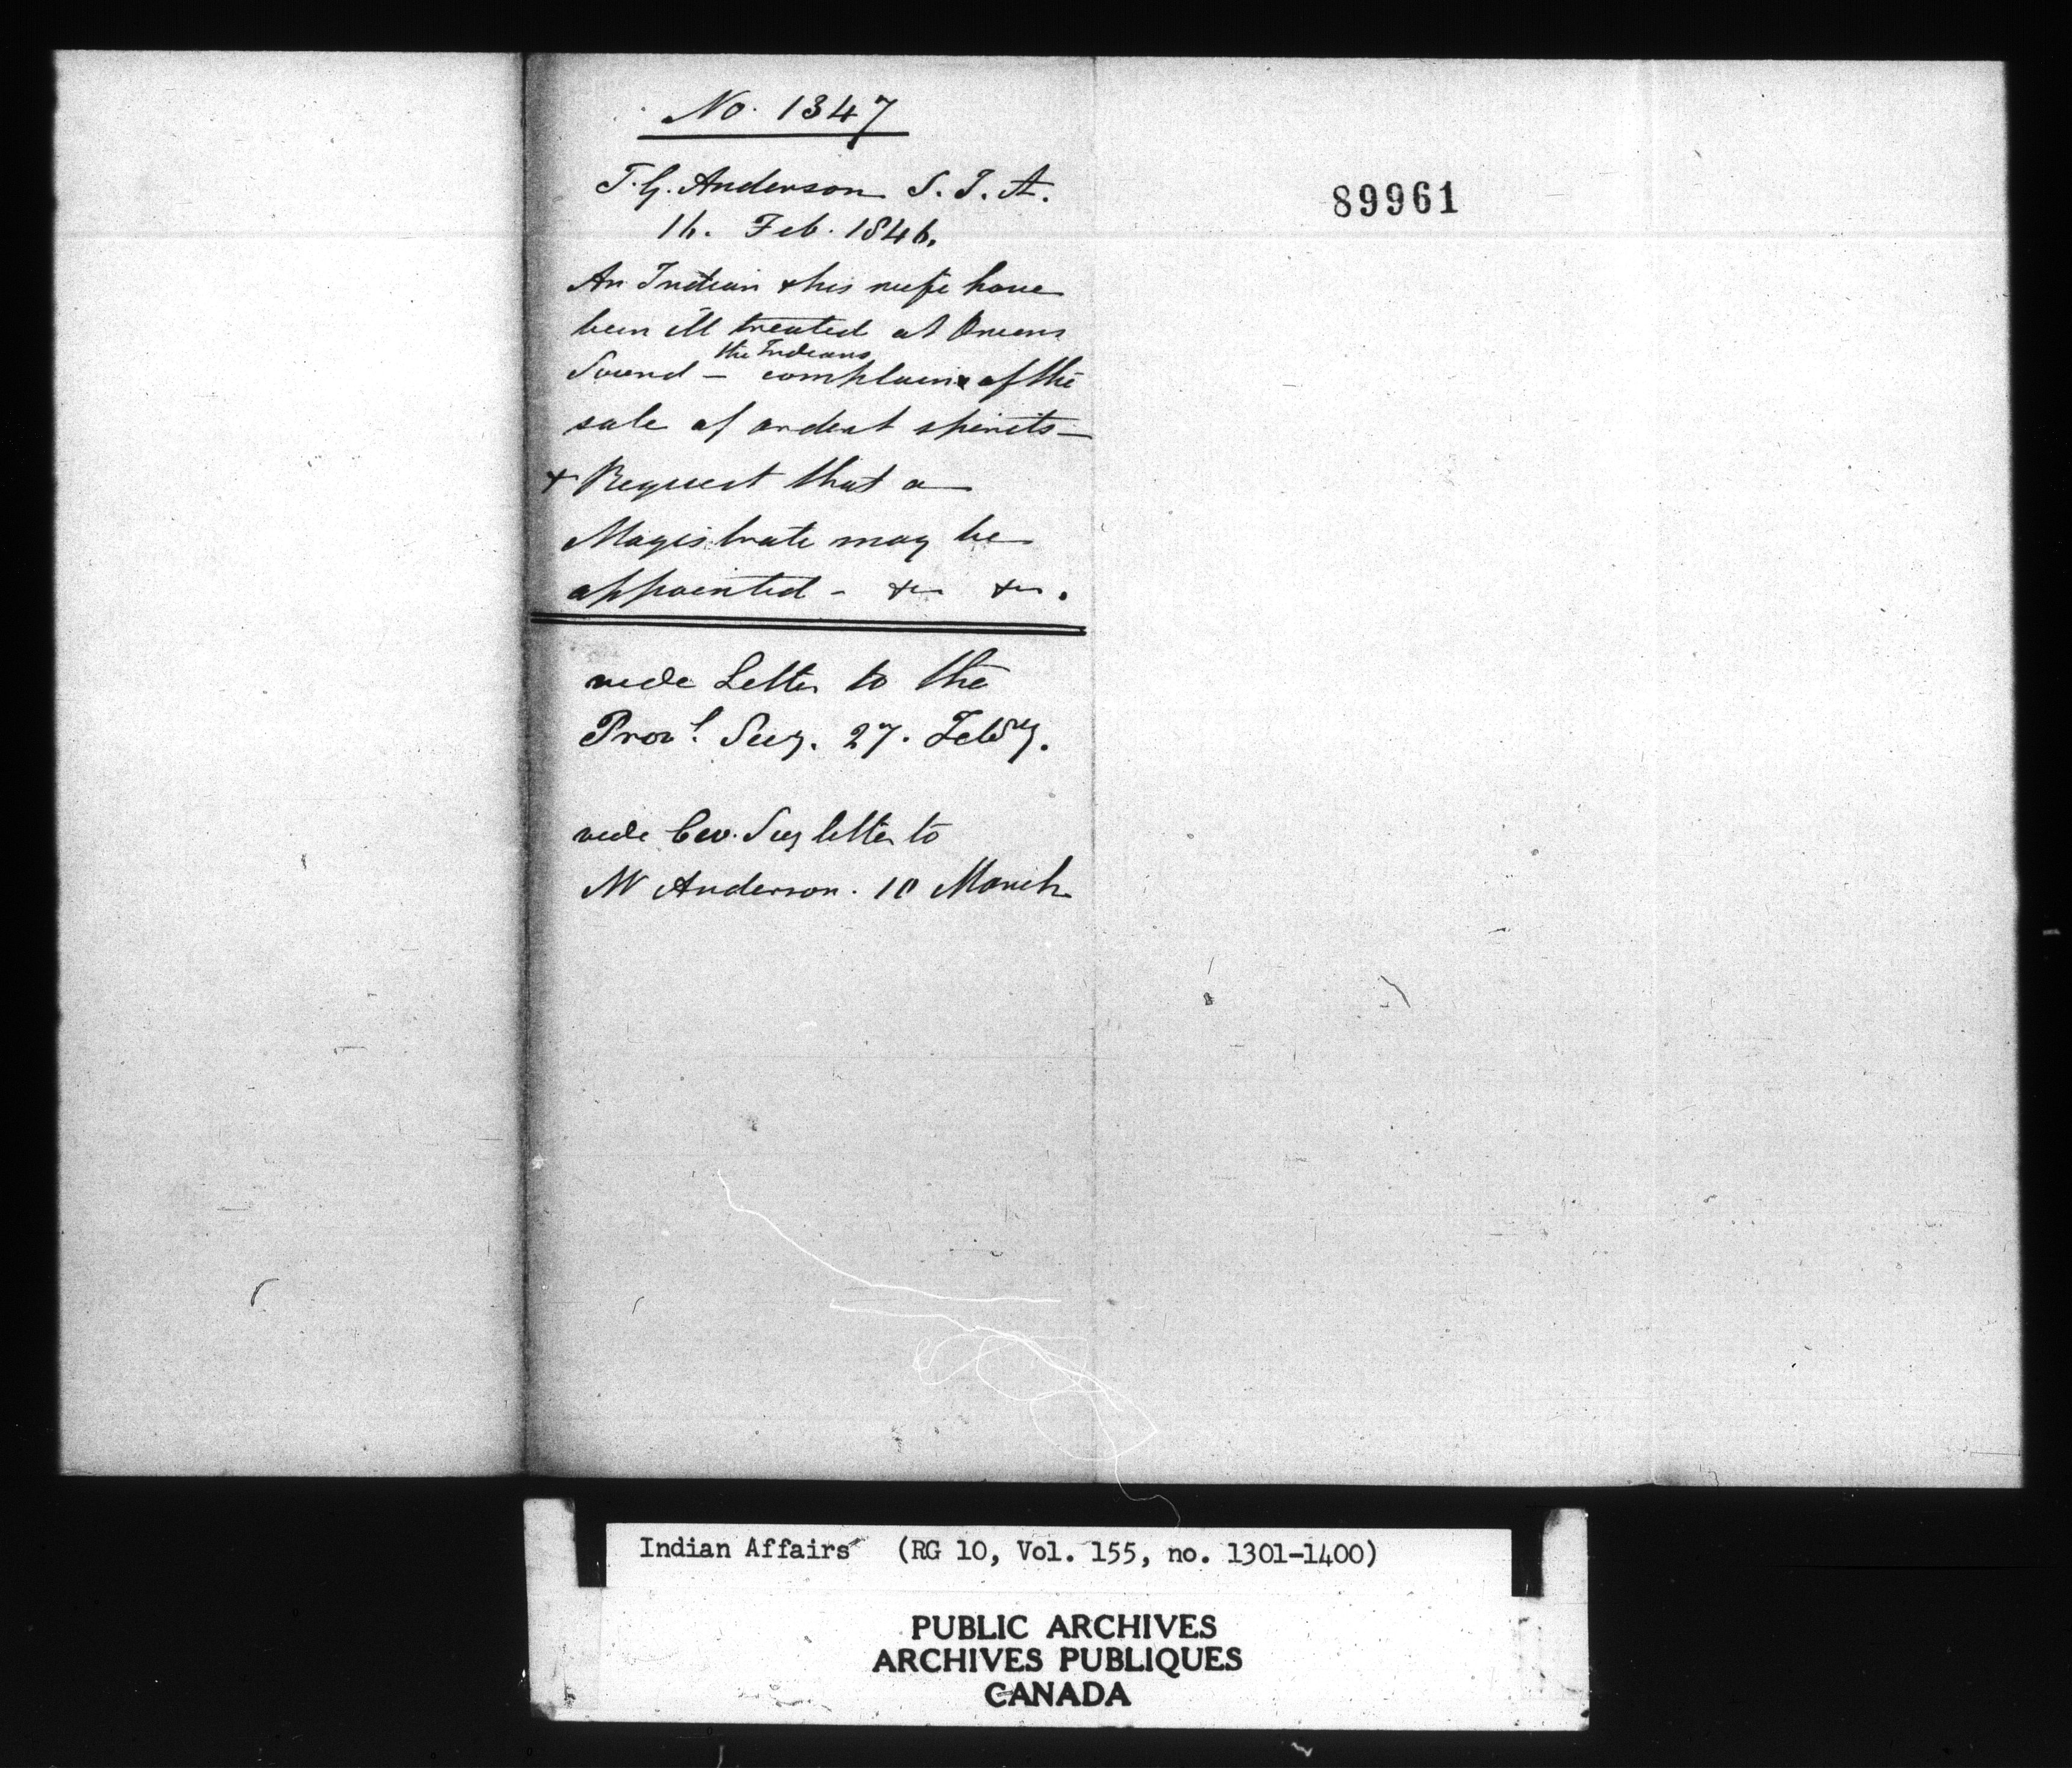 No. 1347
T. G. Anderson S. I. A.
16. Feb. 1846.
An Indian & his wife have
been ill treated at Owens
the Indians
Sound - complain of the
sale of ardent spirits -
& Request that a
Magistrate may be
appointed - &c &c.
vide Letter to the
Provl. Secy. 27. Febry.
vide Civ. Secy letter to
Mr Anderson. 10 March
89961
Indian Affairs (RG 10, Vol. 155, no. 1301-1400)
PUBLIC ARCHIVES
ARCHIVES PUBLIQUES
CANADA